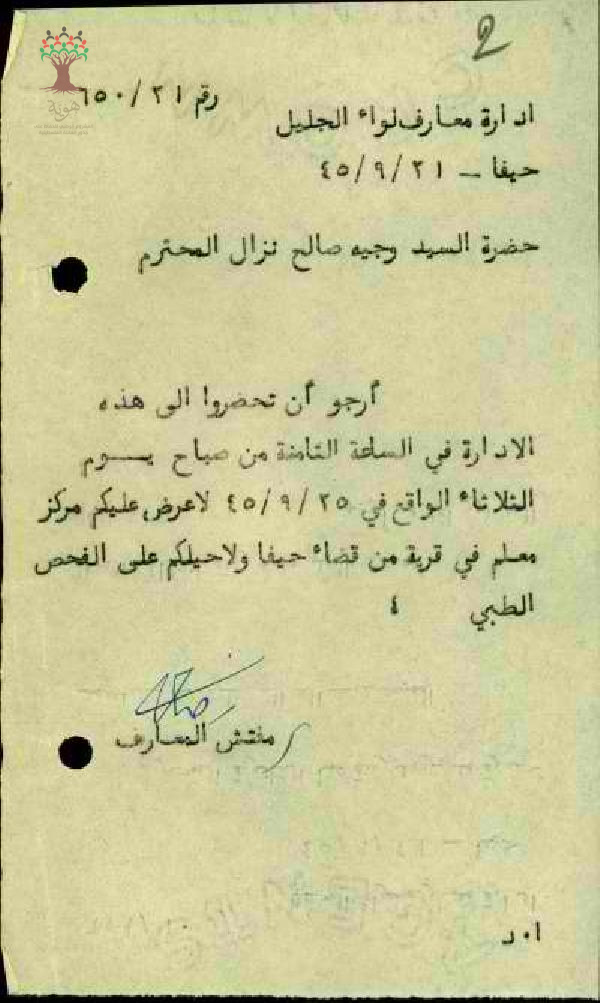 2
رقم ٦٥٠/٢١
ادارة معارف لواء الجليل
حيفا - ٤٥/٩/٢١
حضرة السيد وجيه صالح نزال المحترم
أرجو أن تحضروا الى هذه
الادارة في الساعة الثامنة من صباح يـــوم
الثلاثاء الواقع في ٤٥/٩/٢٥ لاعرض عليكم مركز
معلم في قرية من قضاء حيفا ولاحيلكم على الفحص
الطبي ٤
مفتش المعارف
ا٠د
هوية